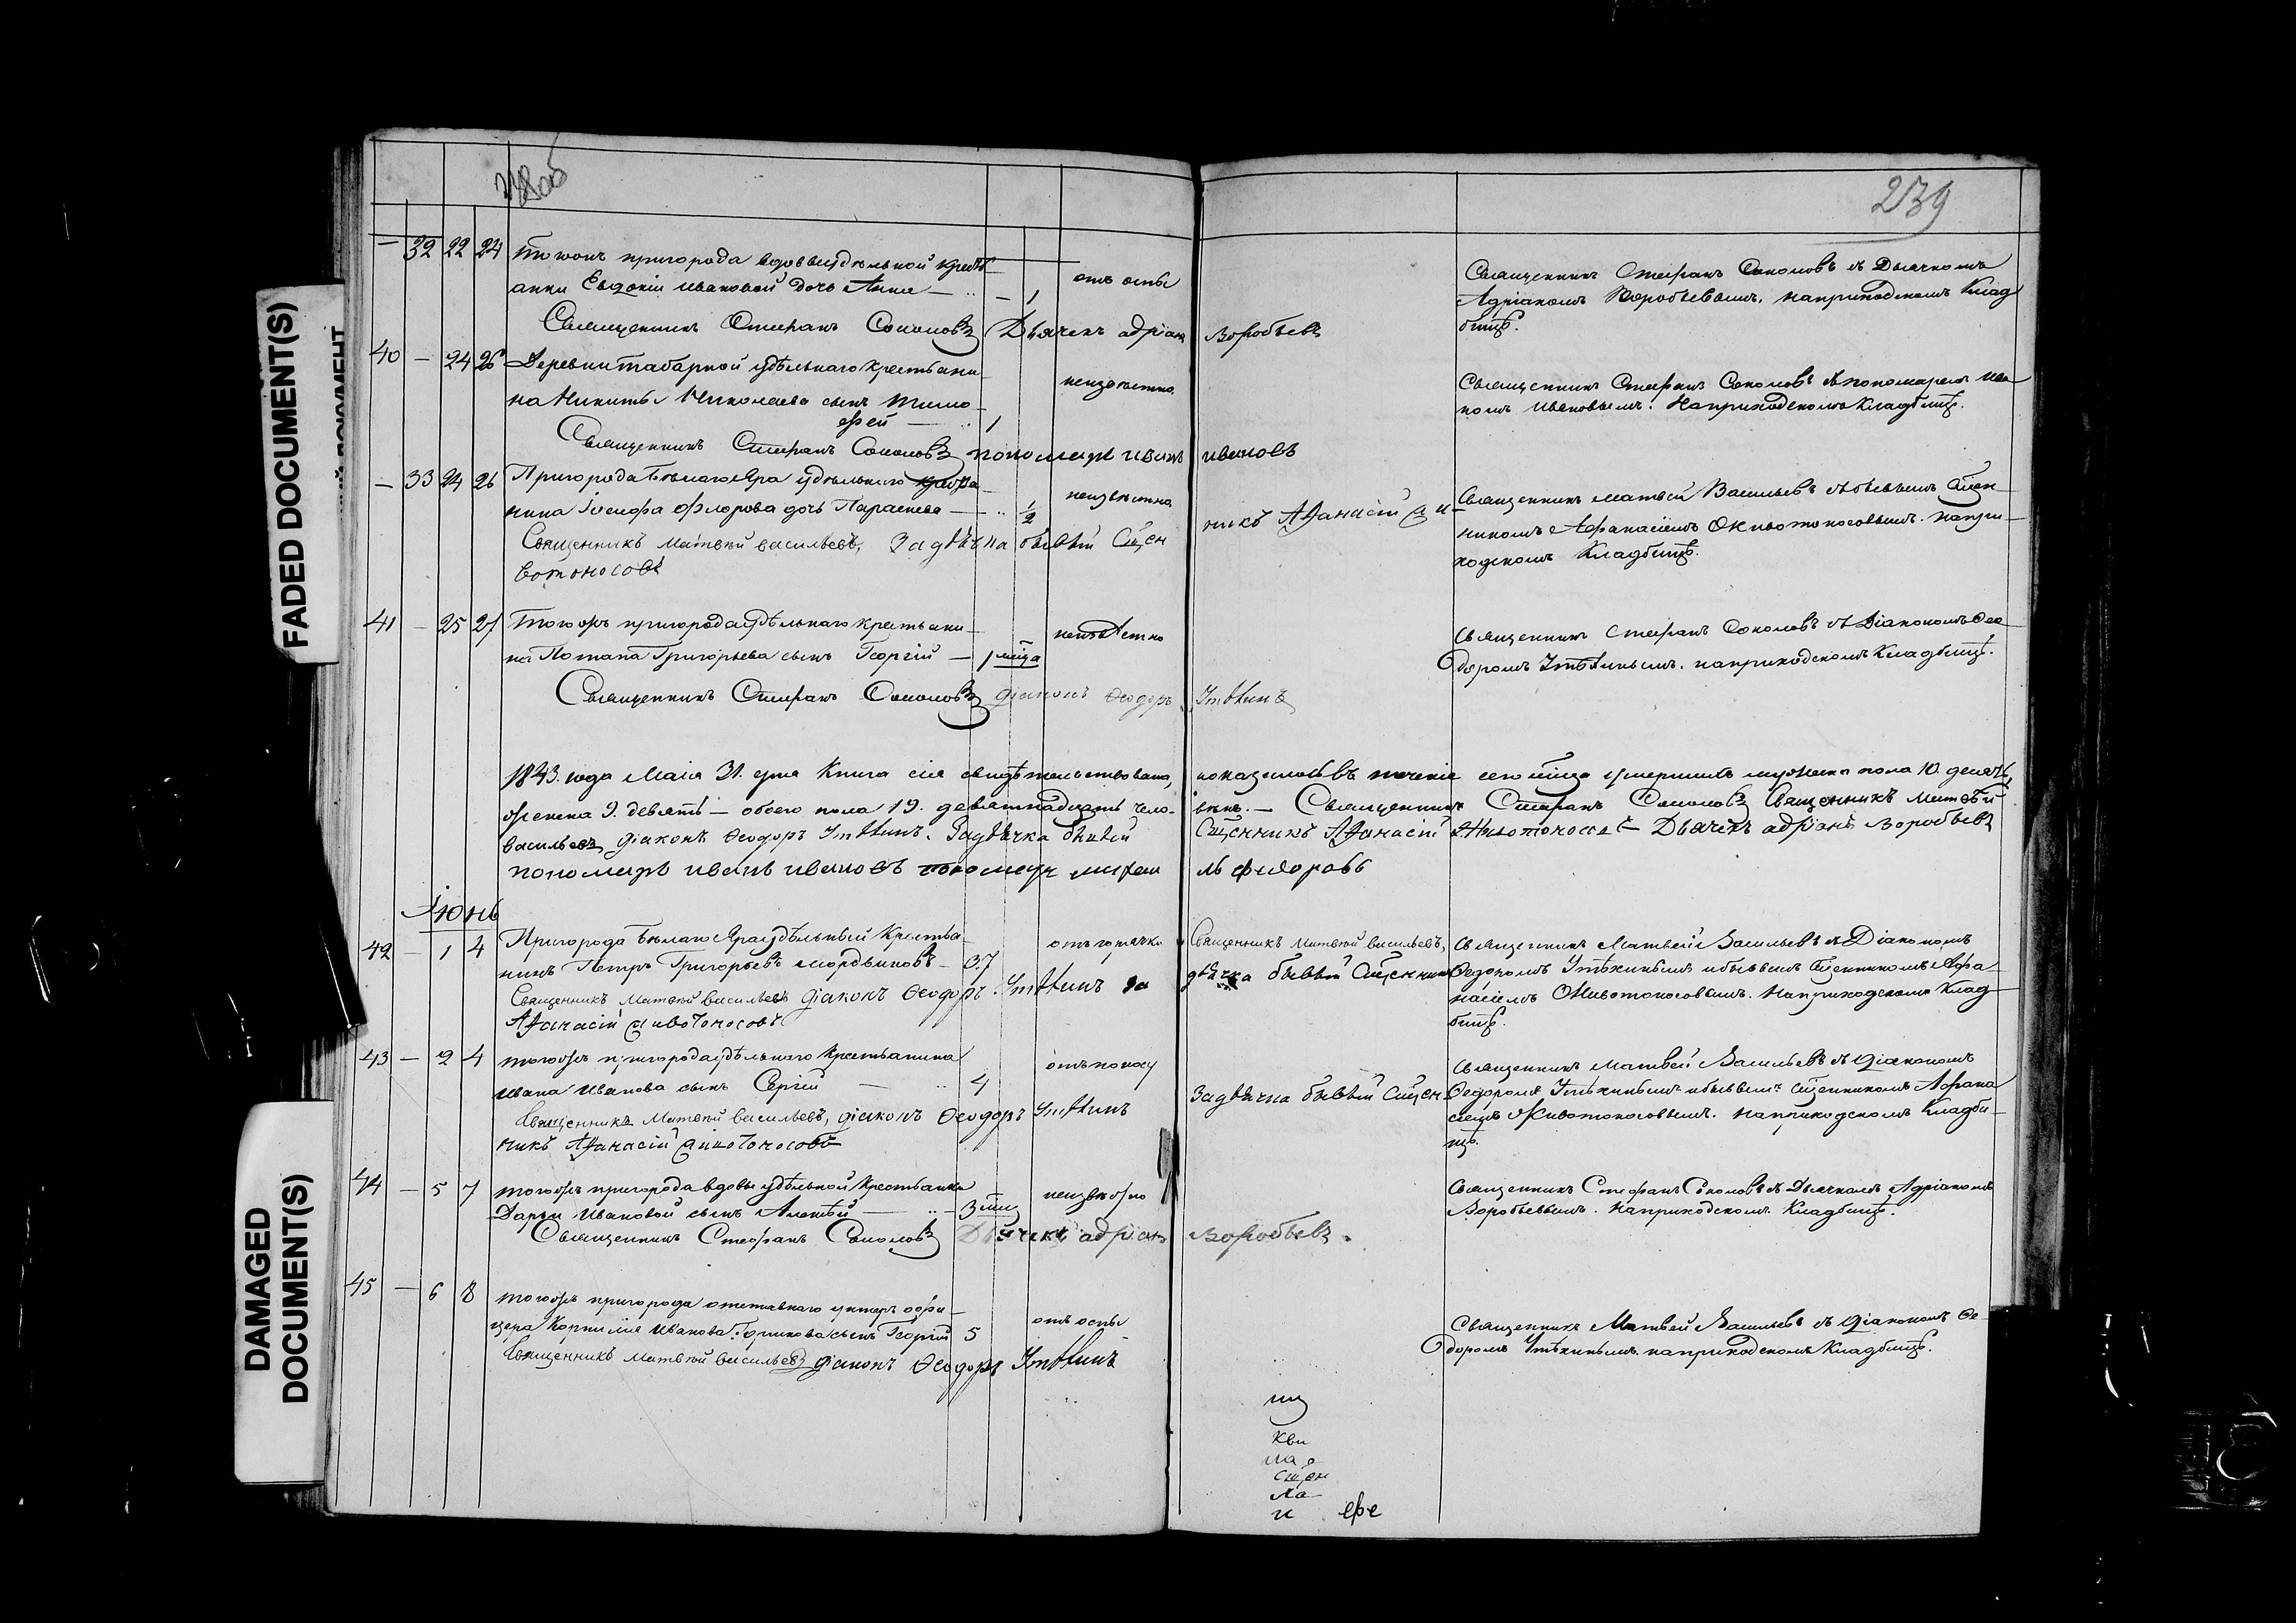 FADED DOCUMENT(S)
DAMAGED
DOCUMENT(S)
238об
239
— 32 22 24 Тогожъ пригорода вдовы удѣльной крестъ
янки Евдокіи Ивановой дочь Анна — 1 отъ оспы
Священникъ Стефанъ Соколовъ Дьячекъ адріанъ Воробьевъ
Священникъ Стефанъ Соколовъ съ Дьячкомъ
Адріаномъ Воробьевымъ. наприходскомъ Клад
бищѣ.
40 — 24 26 Деревни удѣльнаго крестьяни
на Никиты Николаева сынъ Тимо
фей — 1 неизвѣстно
Священникъ Стефанъ Соколовъ пономарь иванъ ивановъ
Священникъ Стефанъ Соколовъ съ пономаремъ Ива
номъ Ивановымъ. Наприходскомъ Кладбищѣ.
— 33 24 26 Пригорода Бѣлаго Яра удѣльнаго крестья
нина Іосифа Флорова дочь Параскева — 1/2 неизвѣстно
Священникъ Матвѣй васильевъ, Задьячка бывый Сщен
никъ Афанасій Жи
вотоносовъ
Священникъ Матвѣй Васильевъ съ бывшимъ Сщен
никомъ Афанасіемъ Животоносовымъ. напри
ходскомъ Кладбищѣ.
41 — 25 27 Тогожъ пригорода удѣльнаго крестьяни
на Потапа Григорьева сынъ Георгій — 1 мѣсца неизвѣстно
Священникъ Стефанъ Соколовъ діаконъ Ѳеодоръ Утѣхинъ
Священникъ Стефанъ Соколовъ съ Діакономъ Ѳео
доромъ Утѣхинымъ. наприходскомъ Кладбищѣ.
1843. года Маія 31. дня Книга сія свидѣтельствована, показалось въ теченіе сего мѣсца умершихъ мужеска пола 10. десять,
женска 9. девять — обоего пола 19. девятнадцать чело вѣкъ. — Священникъ Стефанъ Соколовъ Священникъ Матвѣй
васильевъ діаконъ Ѳеодоръ Утѣхинъ. Задьячка бывый Сщенникъ Афанасій Животоносовъ Дьячекъ адріанъ Воробьевъ
пономарь иванъ ивановъ пономарь михаи лъ федоровъ
Іюнь
42 — 1 4 Пригорода Бѣлаго Яра удѣльный Крестья
нинъ Петръ Григорьевъ Мордвиновъ — 37 отъ горячки
Священникъ Матвѣй васильевъ діаконъ Ѳеодоръ Утѣхинъ за
Священникъ Матвѣй васильевъ,
дьячка бывый Сщенникъ
Афанасій Животоносовъ
Священникъ Матвей Васильевъ съ Діакономъ
Ѳедоромъ Утѣхинымъ и бывшимъ Сщенникомъ Афа
насіемъ Животоносовымъ. Наприходскомъ Клад
бищѣ.
43 — 2 4 тогожъ пригорода удѣльнаго Крестьянина
Ивана Иванова сынъ Сергій — 4 отъ поносу
Священникъ Матвѣй васильевъ, діаконъ Ѳеодоръ Утѣхинъ Задьячка бывый Сщен
никъ Афанасій Животоносовъ
Священникъ Матвей Васильевъ съ діакономъ
Ѳедоромъ Утѣхинымъ и бывшимъ Сщенникомъ Афана
сіемъ Животоносовымъ. наприходскомъ Кладби
щѣ.
44 — 5 7 тогожъ пригорода вдовы удѣльной Крестьянки
Дарьи Ивановой сынъ Алексѣй — 3 неизвѣстно
Священникъ Стефанъ Соколовъ Дьячекъ адріанъ Воробьевъ.
Священникъ Стефанъ Соколовъ съ Дьячкомъ Адріаномъ
Воробьевымъ. Наприходскомъ Кладбищѣ.
45 — 6 8 тогожъ пригорода отставнаго унтеръ офи
цера Корнилія Иванова сынъ Георгій 5 отъ оспы
Священникъ Матвѣй Васильевъ діаконъ Ѳеодоръ Утѣхинъ
Священникъ Матвей Васильевъ съ діакономъ Ѳе
одоромъ Утѣхинымъ. наприходскомъ Кладбищѣ.